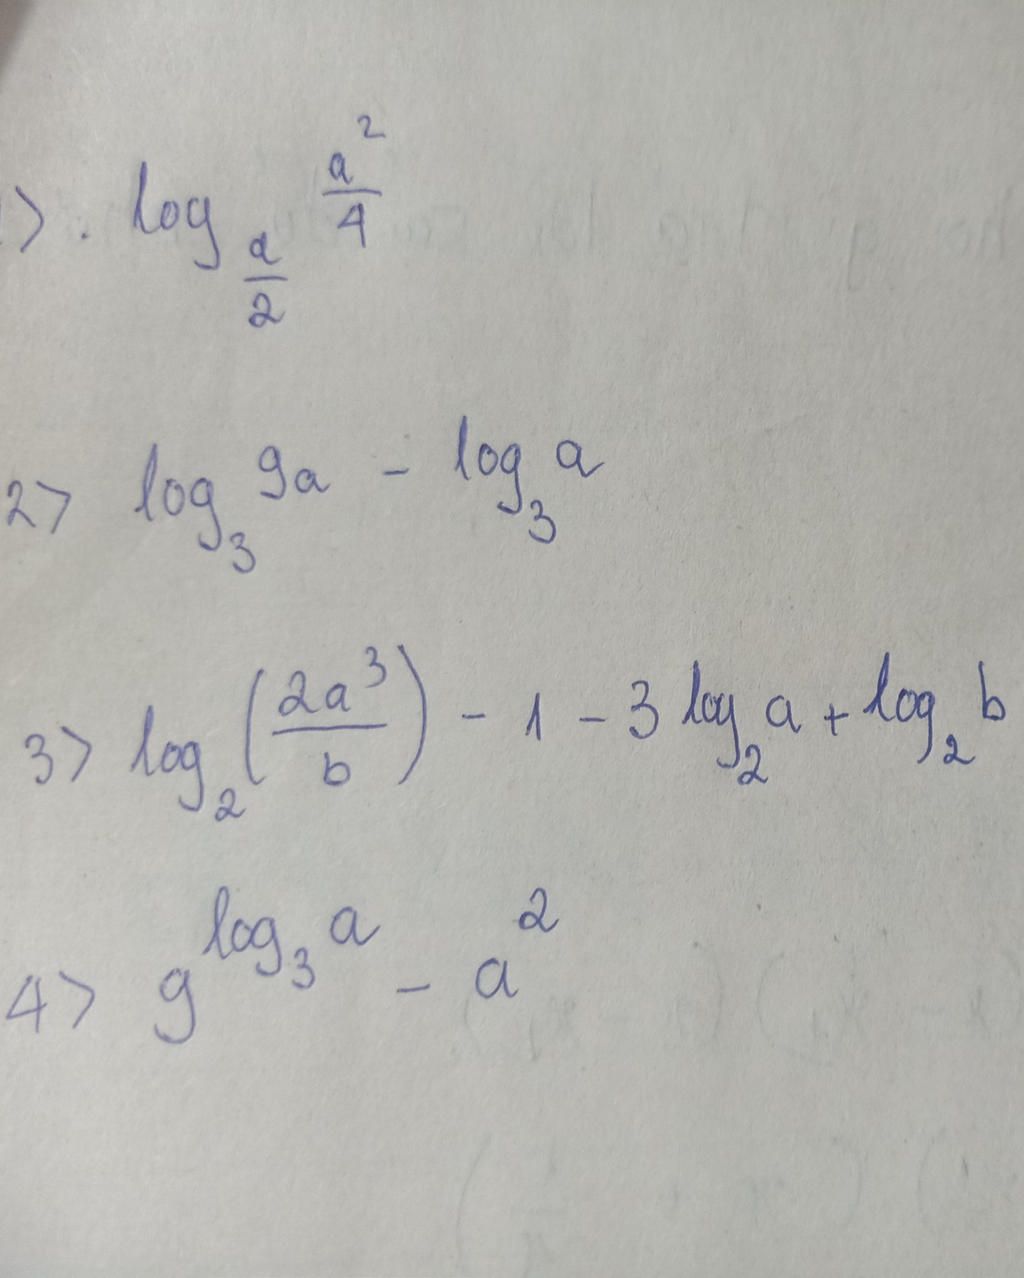 1>. log_{a/2} a²/4
2> log₃ 9a - log₃ a
3> log₂ (2a³/b) - 1 - 3 log₂ a + log₂ b
4> 9^{log₃ a} - a²